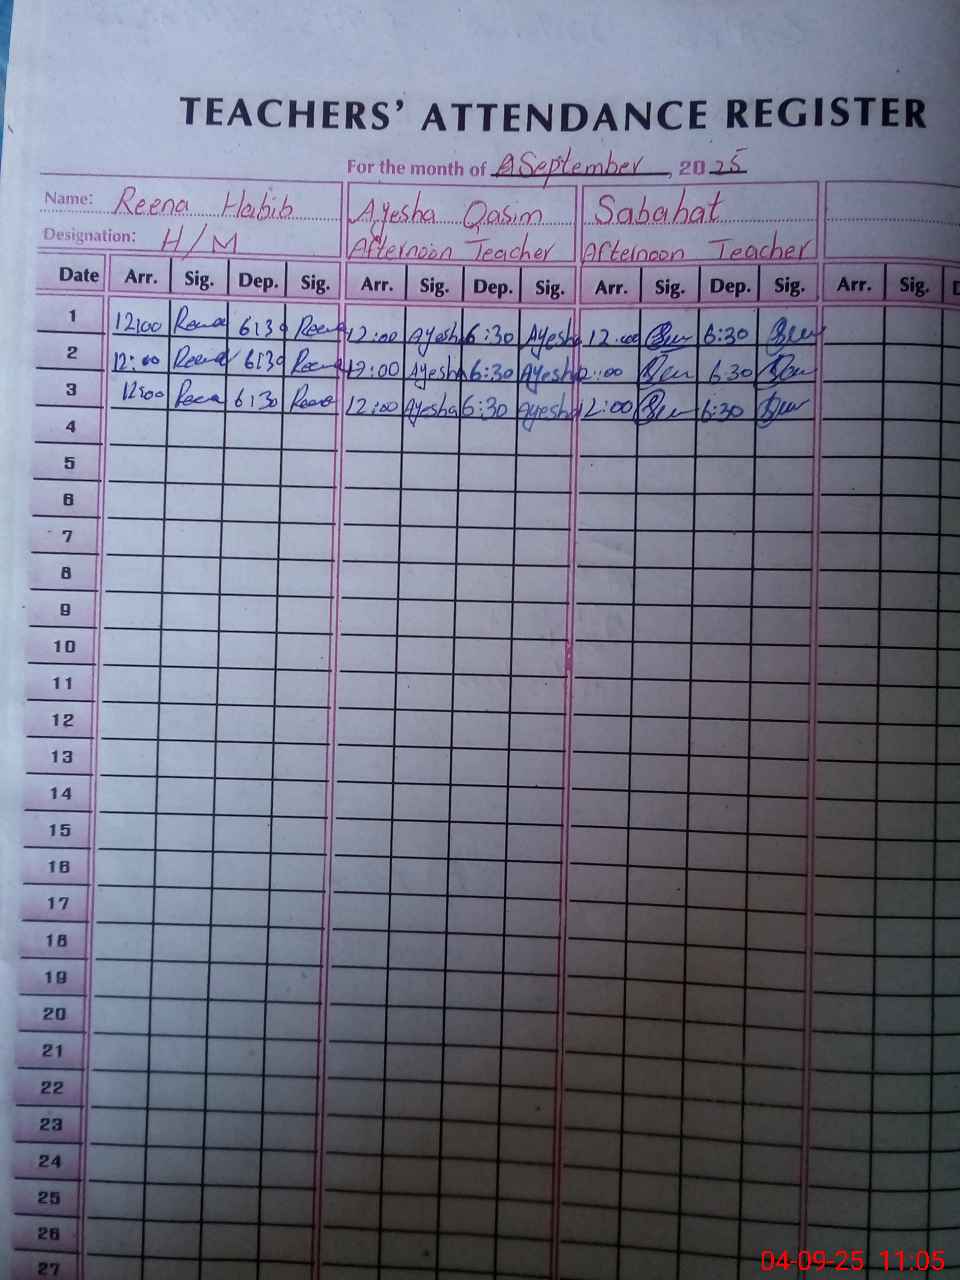 TEACHERS' ATTENDANCE REGISTER
For the month of September, 2025
Name: Reena Habib Ayesha Qasim Sabahat
Designation: H/M Afternoon Teacher Afternoon Teacher
Date Arr. Sig. Dep. Sig. Arr. Sig. Dep. Sig. Arr. Sig. Dep. Sig. Arr. Sig.
1 12:00 Reena 6:30 Reena 12:00 Ayesha 6:30 Ayesha 12:00 6:30
2 12:00 Reena 6:30 Reena 12:00 Ayesha 6:30 Ayesha 12:00 6:30
3 12:00 Reena 6:30 Reena 12:00 Ayesha 6:30 Ayesha 12:00 6:30
4
5
6
7
8
9
10
11
12
13
14
15
16
17
18
19
20
21
22
23
24
25
26
27
04-09-25 11:05